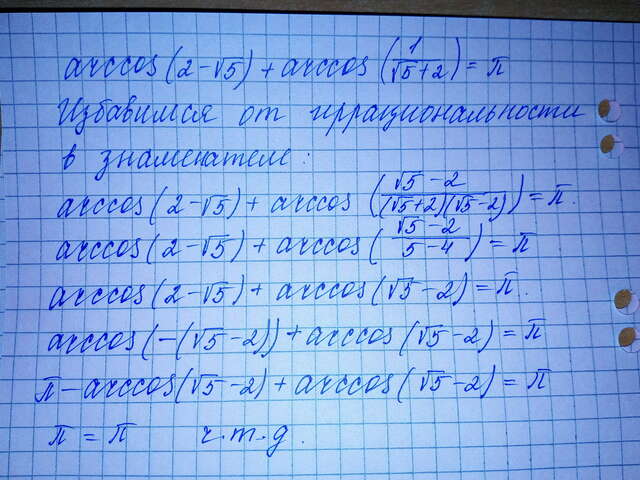 arccos(2-√5) + arccos(1/(√5+2)) = π
Избавимся от иррациональности
в знаменателе:
arccos(2-√5) + arccos((√5-2)/((√5+2)(√5-2))) = π.
arccos(2-√5) + arccos((√5-2)/(5-4)) = π
arccos(2-√5) + arccos(√5-2) = π.
arccos(-(√5-2)) + arccos(√5-2) = π
π - arccos(√5-2) + arccos(√5-2) = π
π = π ч.т.д.